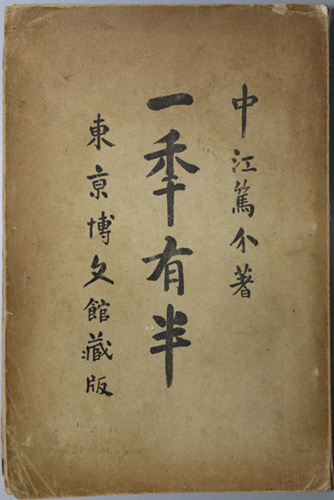 中江篤介著
一秊有半
東京博文館藏版